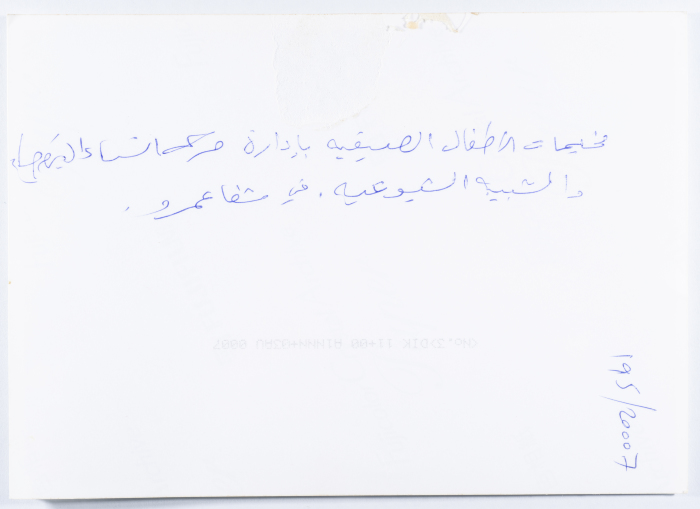 مخيمات الأطفال الصيفيه بإدارة حركة النساء الديمقراطيات
والشبيبه الشيوعيه. في شفاعمرو.
195/20007